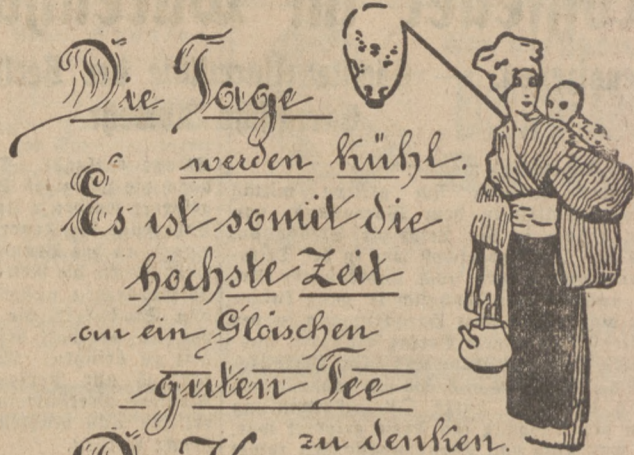 Die Tage
werden kühl.
Es ist somit die
höchste Zeit
an ein Gläschen
guten Tee
zu denken.